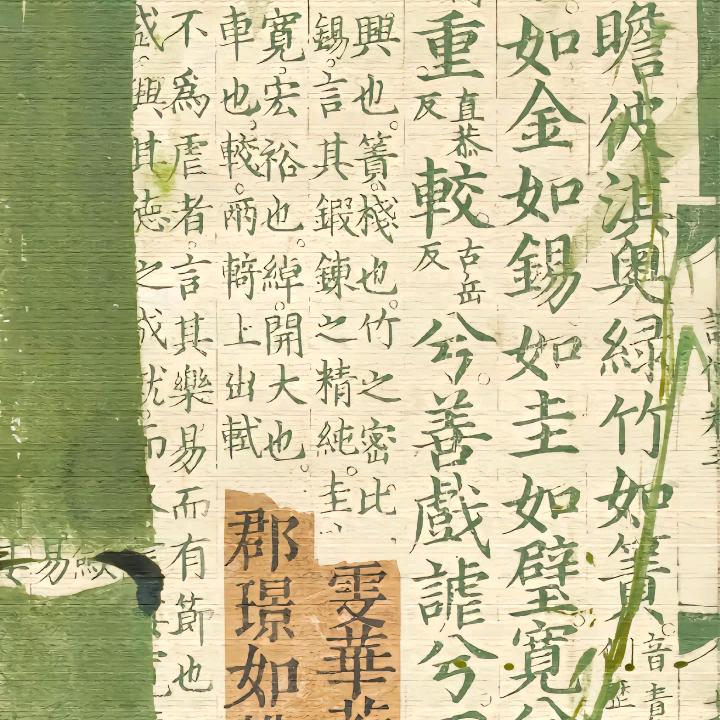 瞻彼淇奧綠竹如簀音責
如金如錫如圭如璧寬兮
重直恭反較古岳反兮善戲謔兮
興也簀棧也竹之密比
錫言其鍜鍊之精純圭
寬宏裕也綽開大也
車也較兩輢上出軾
不為虐者言其樂易而有節也
盛與其德之成就而
雯華
郡璟如
易